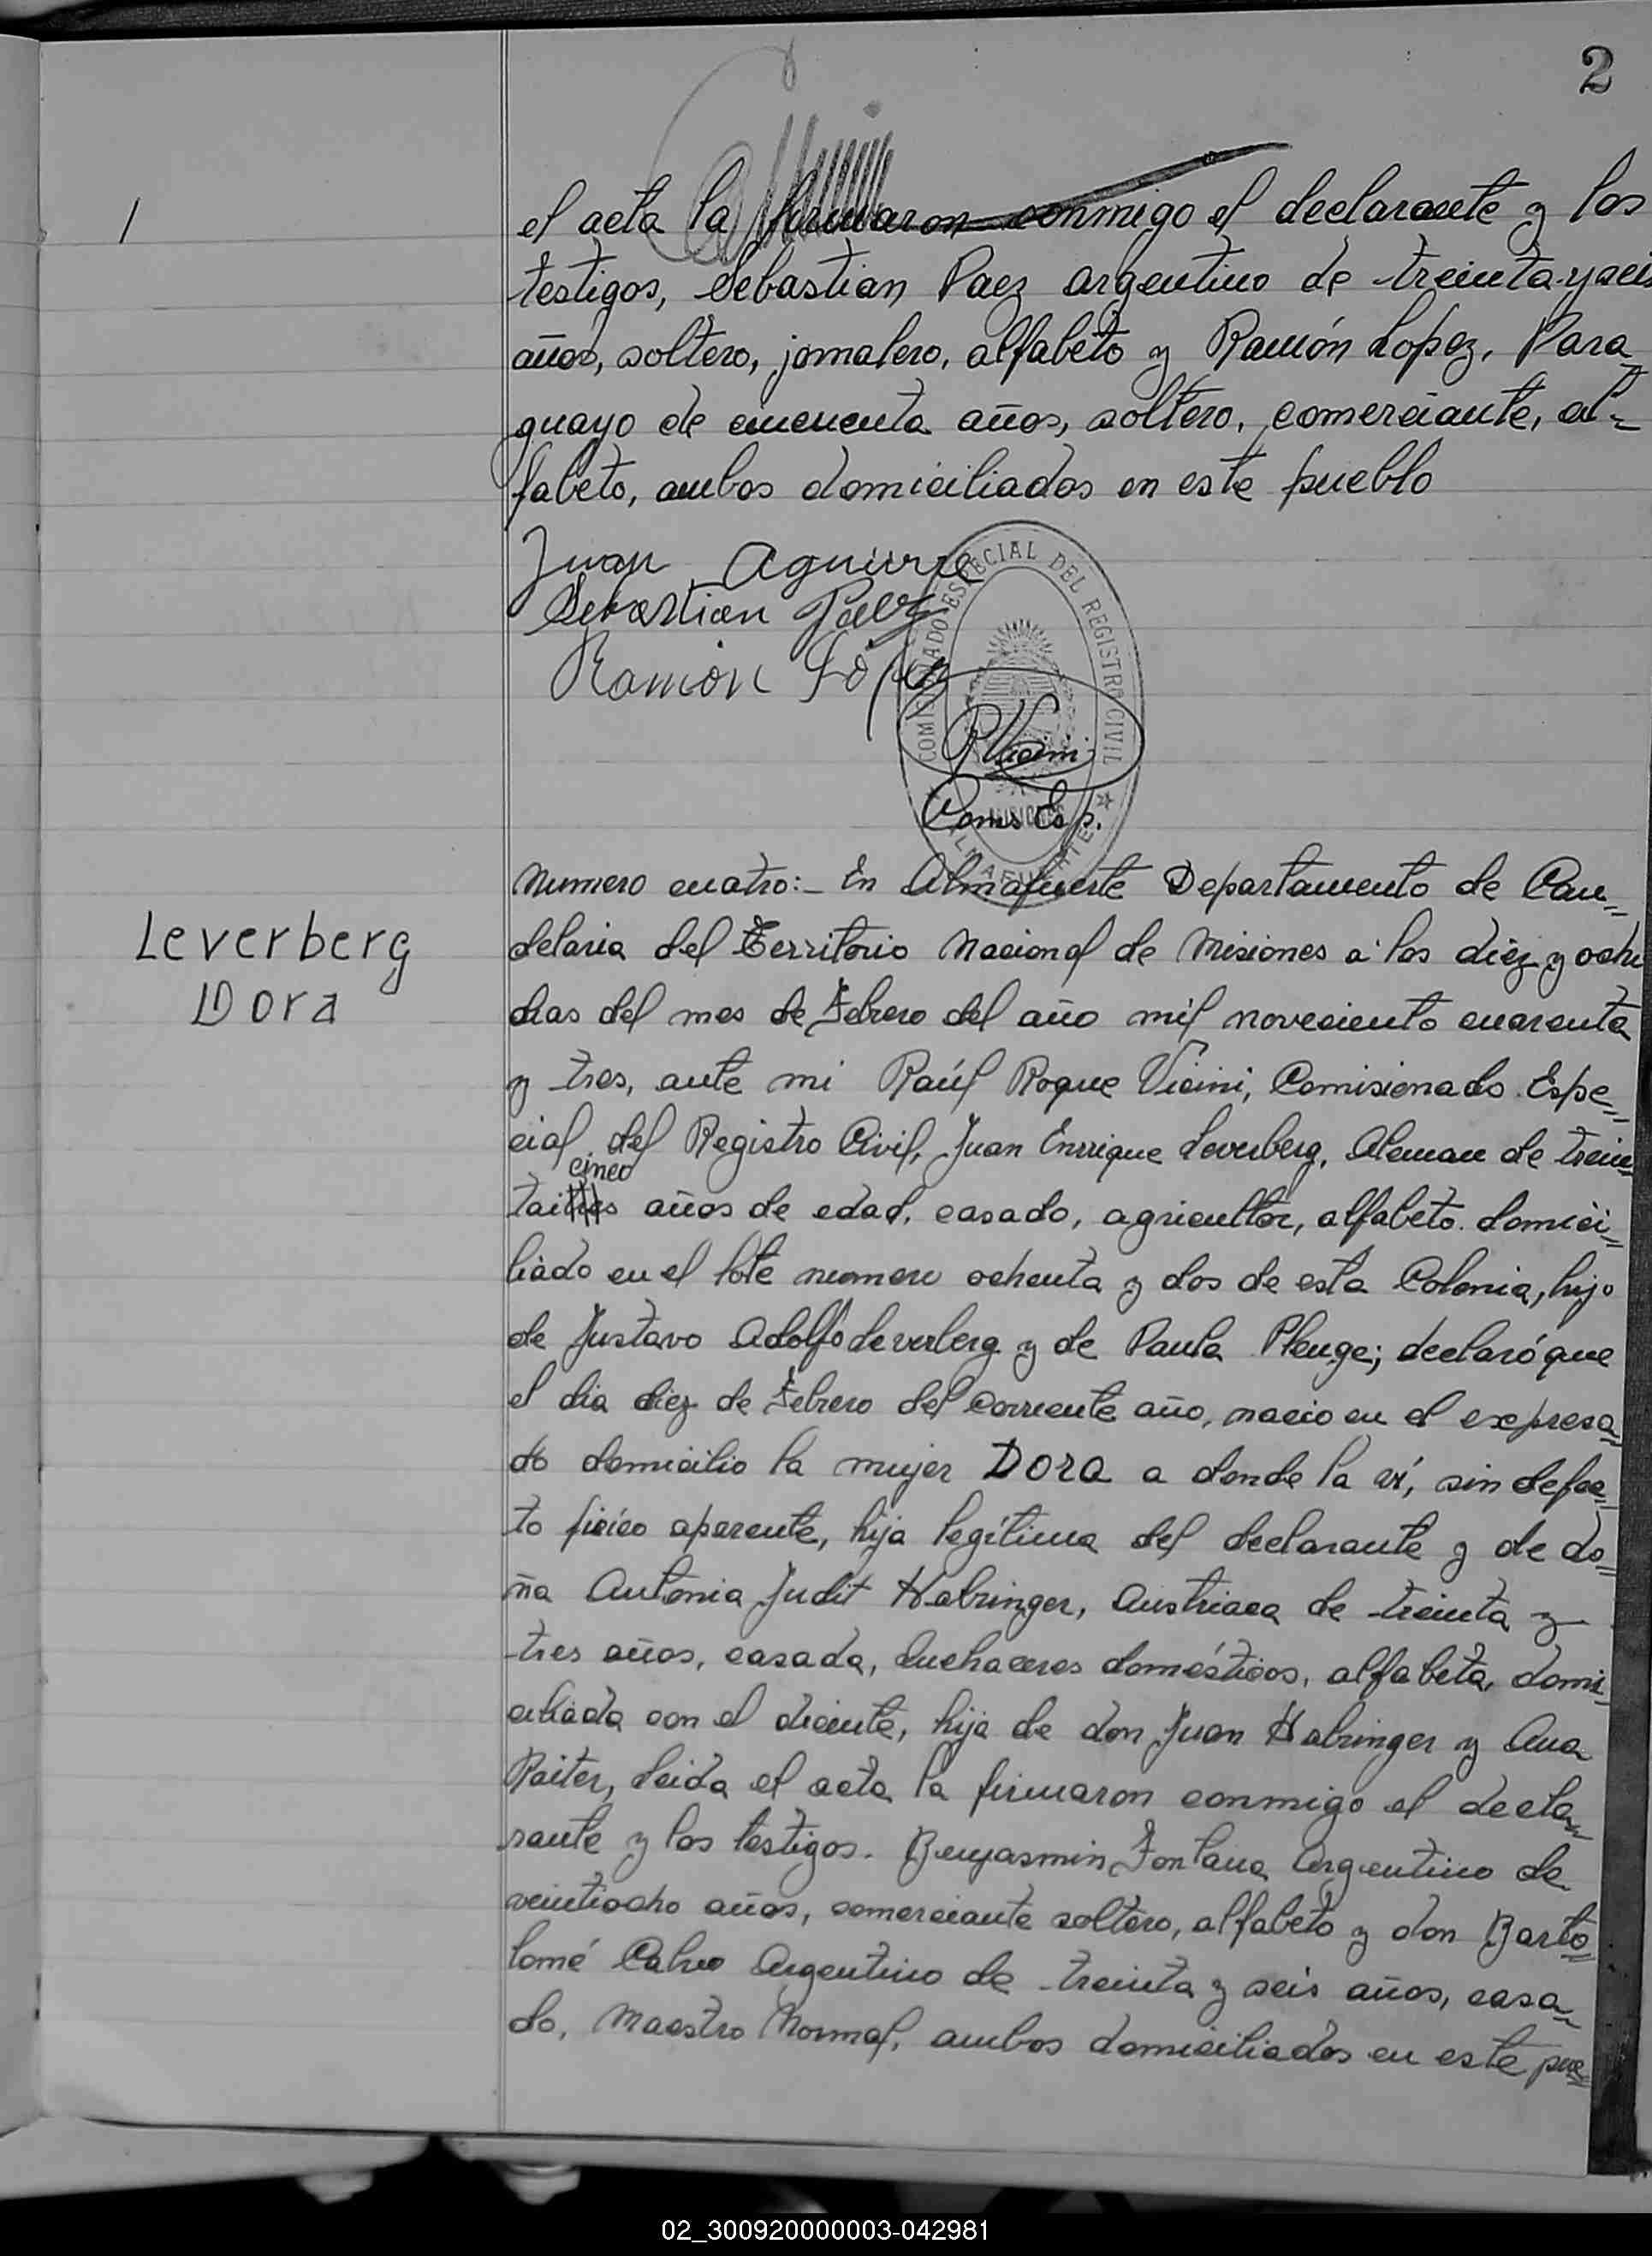 2
1
el acta la firmaron conmigo el declarante y los
testigos, Sebastian Paez argentino de treinta y seis
años, soltero, jornalero, alfabeto y Ramón Lopez, Para
guayo de cincuenta años, soltero, comerciante, al=
fabeto, ambos domiciliados en este pueblo
Juan Aguirre
Sebastian Paez
Ramón López
COMISIONADO ESPECIAL DEL REGISTRO CIVIL
MISIONES
ALMAFUERTE
RVicini
Coms Esp.
Leverberg
Dora
Numero cuatro:- En Almafuerte Departamento de Can=
delaria del Territorio Nacional de Misiones a los diez y ocho
dias del mes de Febrero del año mil noveciento cuarenta
y tres, ante mi Raúl Roque Vicini, Comisionado Espe=
cial del Registro Civil, Juan Enrrique Leverberg, Aleman de trein=
cinco
taitres años de edad, casado, agricultor, alfabeto. domici=
liado en el lote numero ochenta y dos de esta Colonia, hijo
de Gustavo Adolfo Leverberg y de Paula Plenge; declaró que
el dia diez de Febrero del corriente año, nacio en el expresa=
do domicilio la mujer DORA a donde la vi, sin defec=
to fisico aparente, hija legítima del declarante y de do=
ña Antonia Judit Habringer, Austriaca de treinta y
tres años, casada, Quehaceres domésticos, alfabeta, domi=
ciliada con el diciente, hija de don Juan Habringer y Ana
Raiter, Leida el acta la firmaron conmigo el decla=
rante y los testigos. Benjasmin Fontana Argentino de
veintiocho años, comerciante soltero, alfabeto y don Barto=
lomé Calvo Argentino de treinta y seis años, casa=
do, Maestro Normal, ambos domiciliados en este pue=
02_300920000003-042981